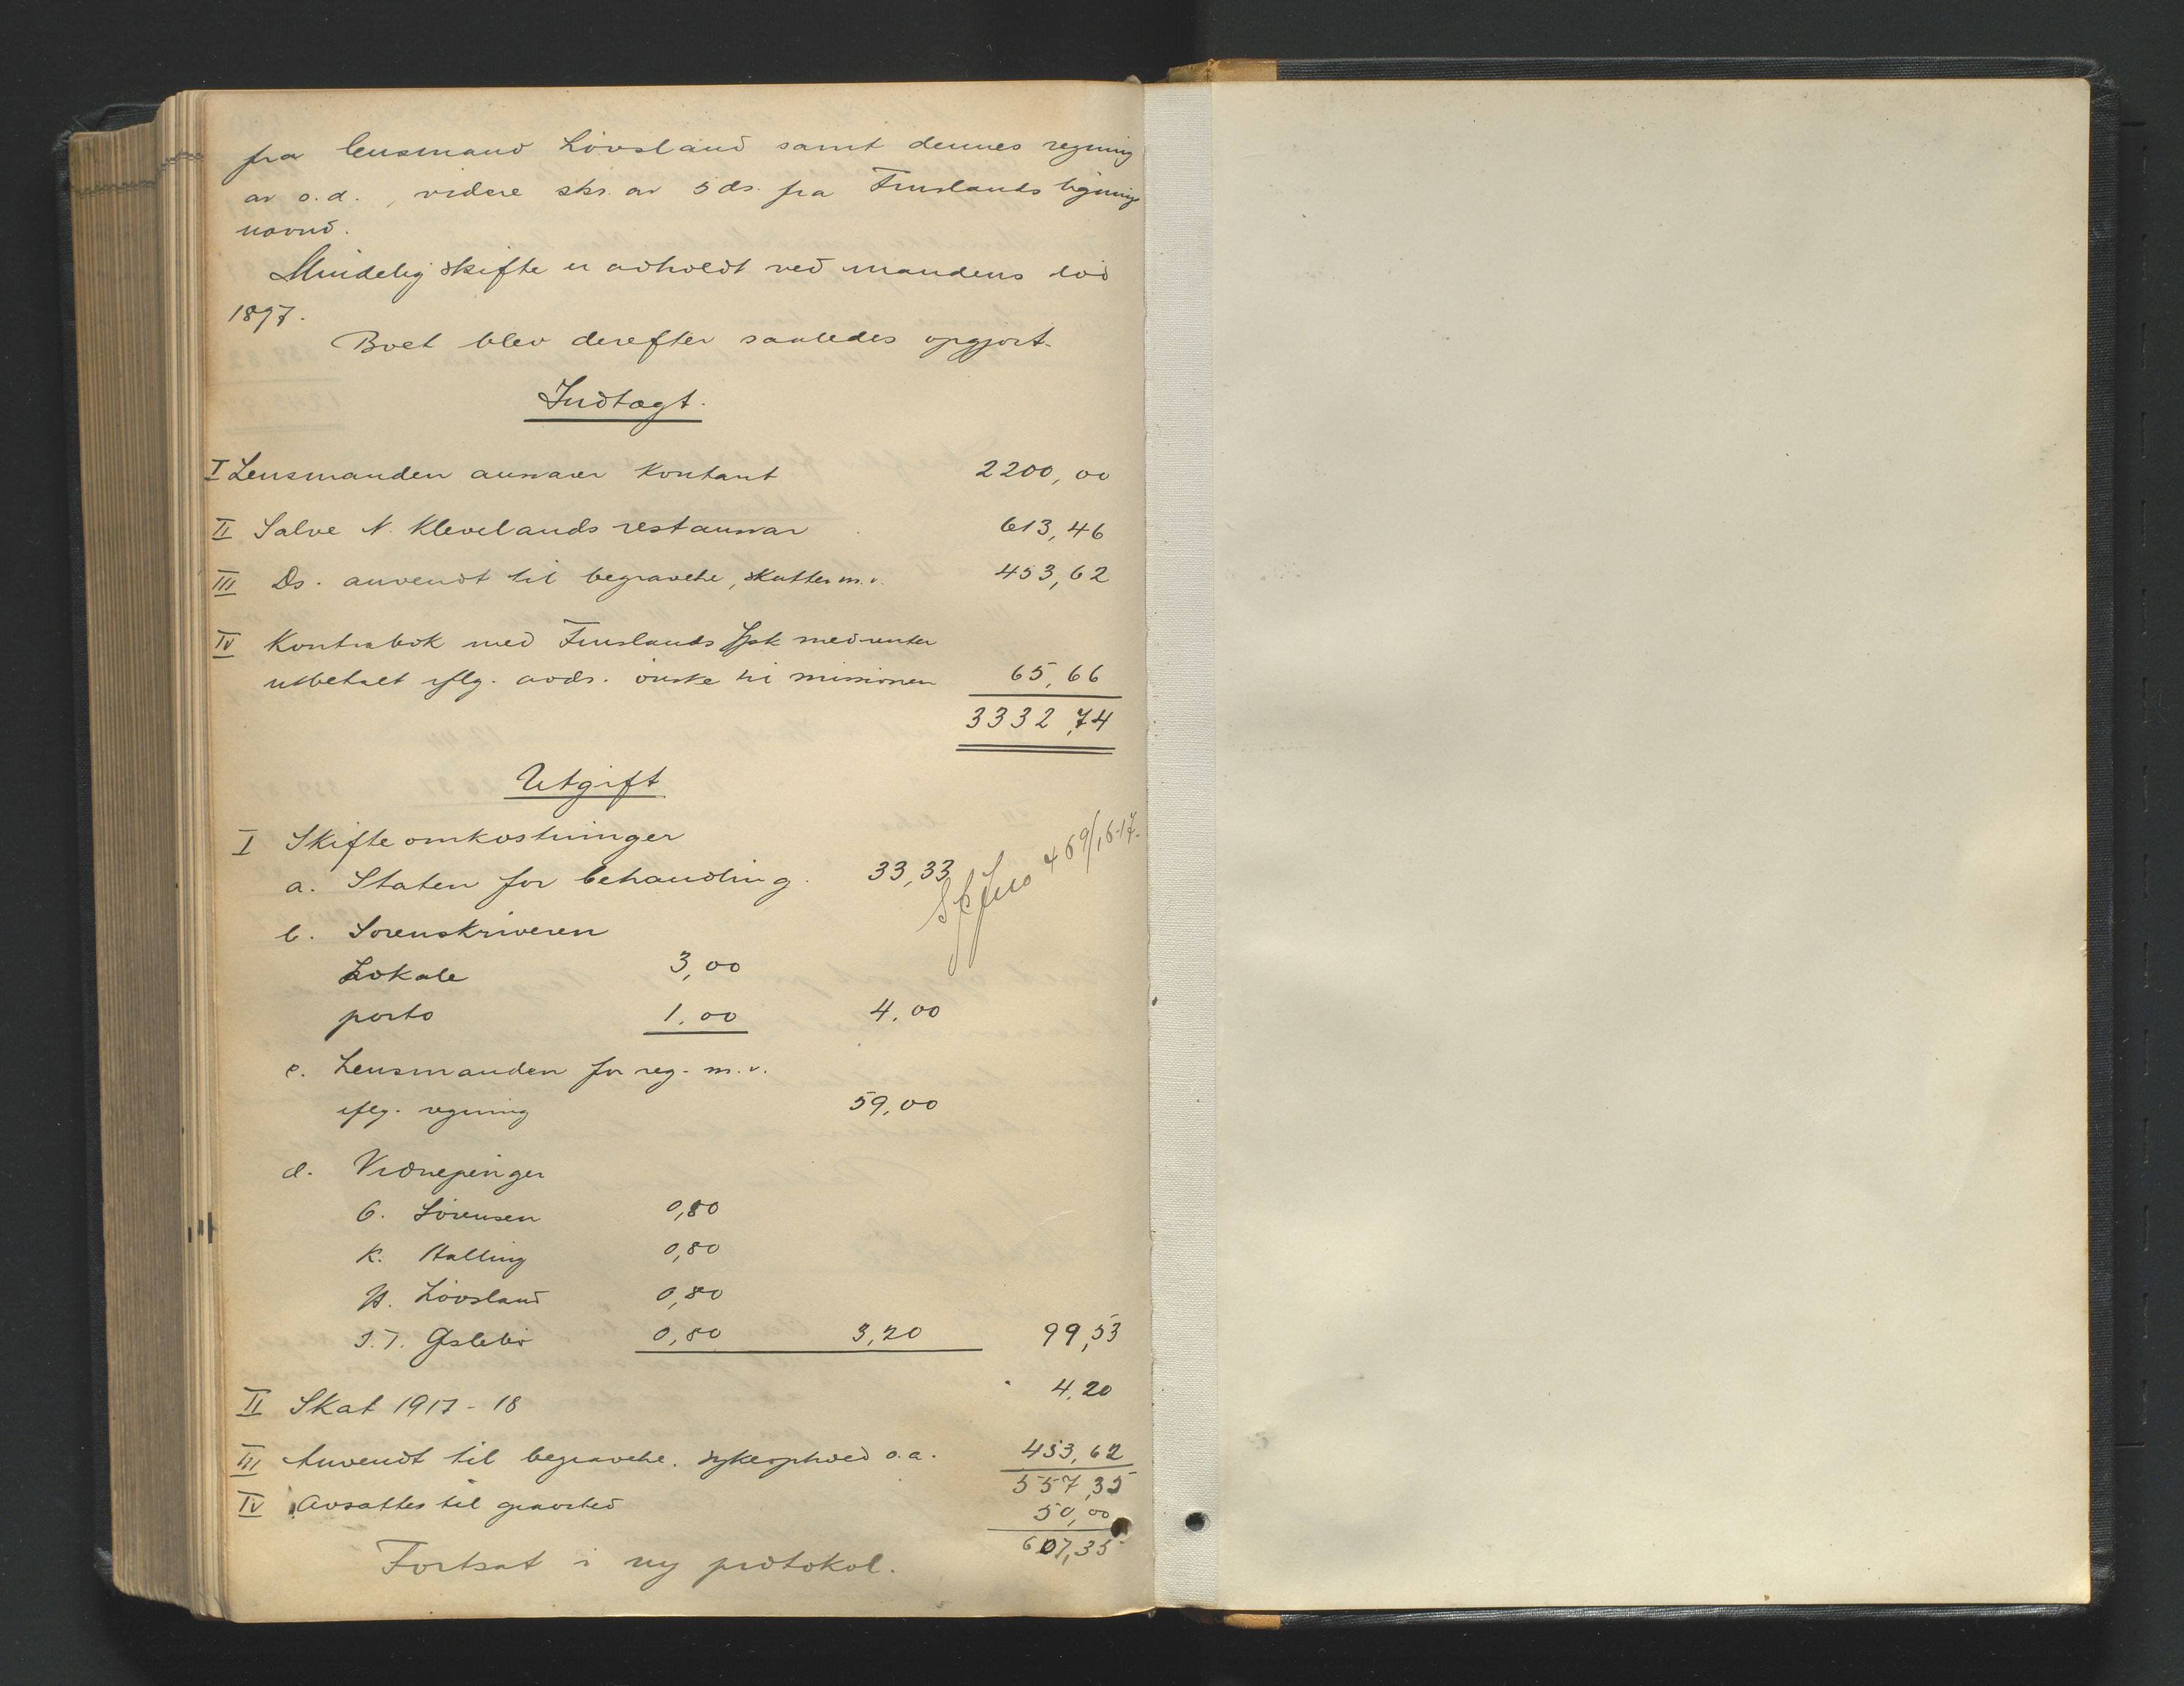 fra lensmand Lövsland samt dennes regning
av s.d., videre skr. av 5 ds. fra Finslands lignings
nævnd.
Mindelig skifte er avholdt ved mandens död
1897.
Boet blev derefter saaledes opgjort.
Indtægt.
I Lensmanden ansvarer kontant 2200,00
II Salve N. Klevelands restansvar 613,46
III Ds. anvendt til begravelse, skatter m.v. 453,62
IV Kontrabok med Finslands Spk med renter
utbetalt iflg. avds. önske til missionen 65,66
3332,74
Utgift
I Skifteomkostninger
a. Staten for behandling. 33,33
469/16-17.
b. Sorenskriveren
Lokale 3,00
porto 1,00 4,00
c. Lensmanden for reg. m.v.
iflg. regning 59,00
d. Vidnepenger
G. Sörensen 0,80
K. Halling 0,80
H. Lövsland 0,80
S.T. Öislebö 0,80 3,20 99,53
II Skat 1917-18 4,20
III Anvendt til begravelse, sykeophold o.a. 453,62
557,35
IV Avsættes til gravsted 50,00
607,35
Fortsat i ny protokol.